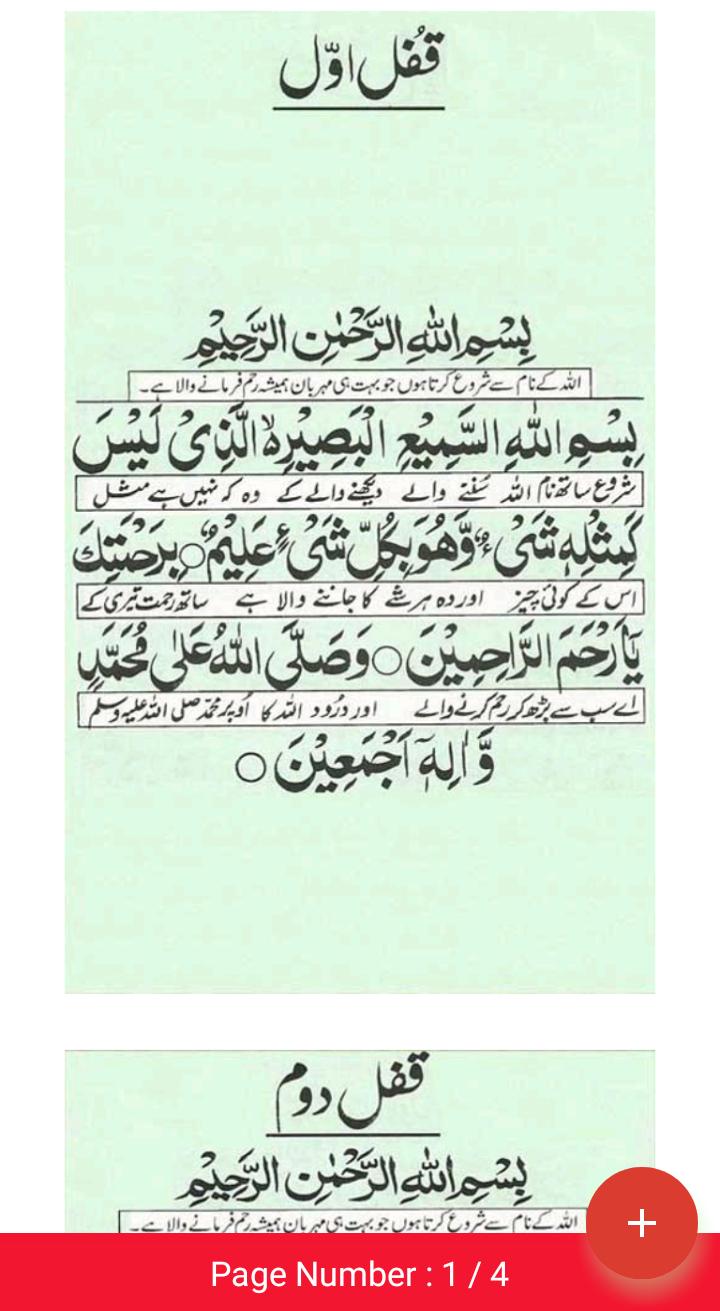 قُفل اوّل
بِسْمِ اللّٰهِ الرَّحْمٰنِ الرَّحِيْمِ
اللہ کے نام سے شروع کرتا ہوں جو بہت ہی مہربان ہمیشہ رحم فرمانے والا ہے۔
بِسْمِ اللّٰهِ السَّمِيْعِ الْبَصِيْرِ ہلا الَّذِیْ لَيْسَ
شروع ساتھ نام اللہ سُننے والے دیکھنے والے کے وہ کہ نہیں ہے مثل
كَمِثْلِهٖ شَیْءٌ وَّهُوَ بِكُلِّ شَیْءٍ عَلِيْمٌ ○ بِرَحْمَتِكَ
اس کے کوئی چیز اور وہ ہر شے کا جاننے والا ہے ساتھ رحمت تیری کے
يَآ اَرْحَمَ الرَّاحِمِيْنَ ○ وَصَلَّى اللّٰهُ عَلٰى مُحَمَّدٍ
اے سب سے بڑھ کر رحم کرنے والے اور درُود اللہ کا اُوپر محمّد صلی اللہ علیہ وسلم
وَّاٰلِهٖٓ اَجْمَعِيْنَ ○
قفل دوم
بِسْمِ اللّٰهِ الرَّحْمٰنِ الرَّحِيْمِ
اللہ کے نام سے شروع کرتا ہوں جو بہت ہی مہربان ہمیشہ رحم فرمانے والا ہے۔
+
Page Number : 1 / 4